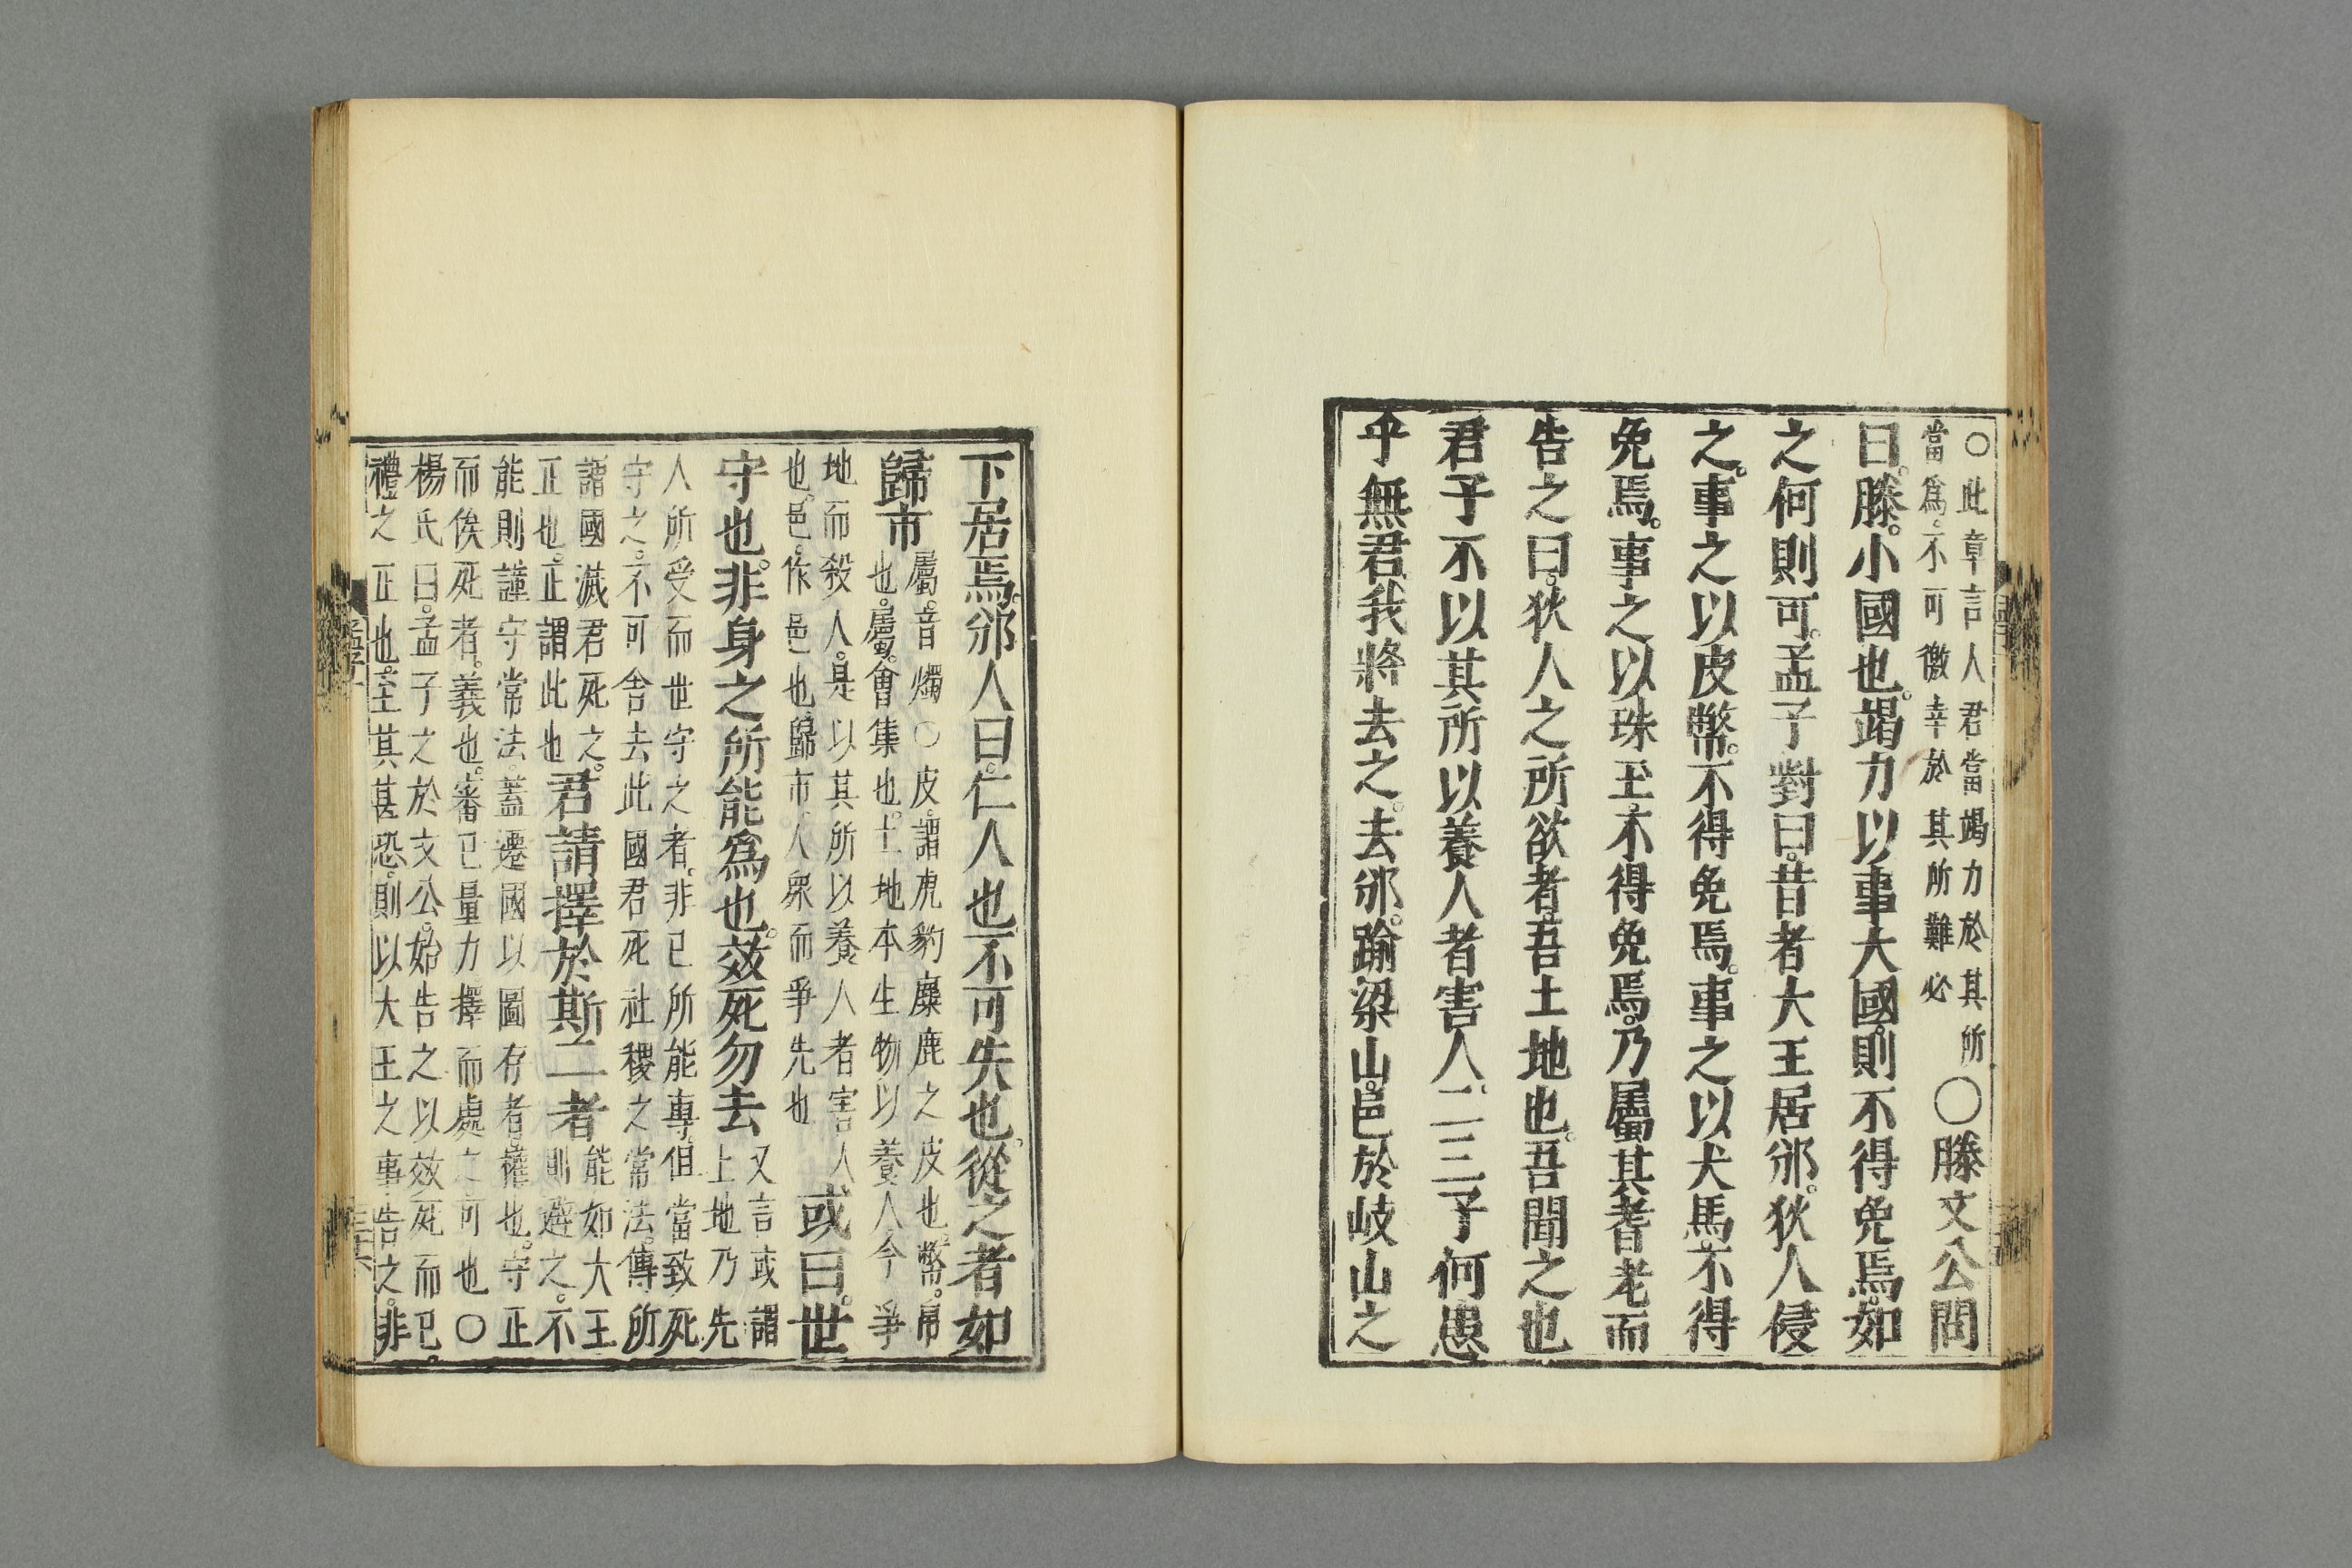 ○此章言人君當竭力於其所
當爲。不可徼幸於其所難必
○滕文公問
曰。滕。小國也。竭力以事大國。則不得免焉。如
之何則可。孟子對曰。昔者大王居邠。狄人侵
之。事之以皮幣。不得免焉。事之以犬馬。不得
免焉。事之以珠玉。不得免焉。乃屬其耆老而
告之曰。狄人之所欲者。吾土地也。吾聞之也
君子不以其所以養人者害人。二三子何患
乎無君。我將去之。去邠。踰梁山。邑於岐山之
下居焉。邠人曰。仁人也。不可失也。從之者如
歸市
屬。音燭○皮。謂虎豹麋鹿之皮也。幣。帛
也。屬。會集也。土地本生物以養人今爭
地而殺人。是以其所以養人者害人
也。邑。作邑也。歸市。人衆而爭先也
或曰。世
守也。非身之所能爲也。效死勿去
又言或謂
土地乃先
人所受而世守之者。非已所能專。但當致死
守之。不可舍去此國君死社稷之常法。傳所
謂國滅君死之。
正也。正謂此也
君請擇於斯二者
能如大王
則避之。不
能則謹守常法。蓋遷國以圖存者。權也。守正
而俟死者。義也。審已量力擇而處之可也○
楊氏曰。孟子之於文公。始告之以效死而已。
禮之正也。至其甚恐。則以大王之事告之。非